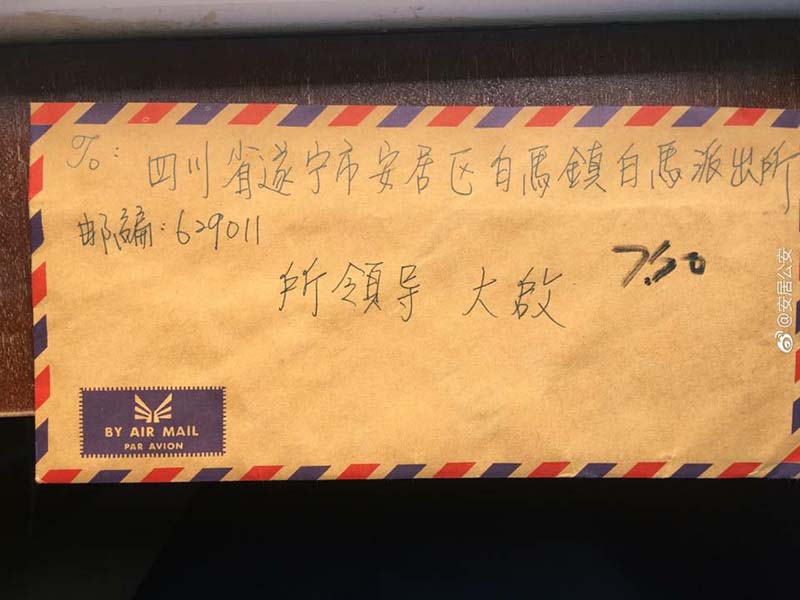 To: 四川省遂宁市安居区白馬鎮白馬派出所
邮编: 629011
所領导 大啟
7.50
BY AIR MAIL
PAR AVION
@安居公安